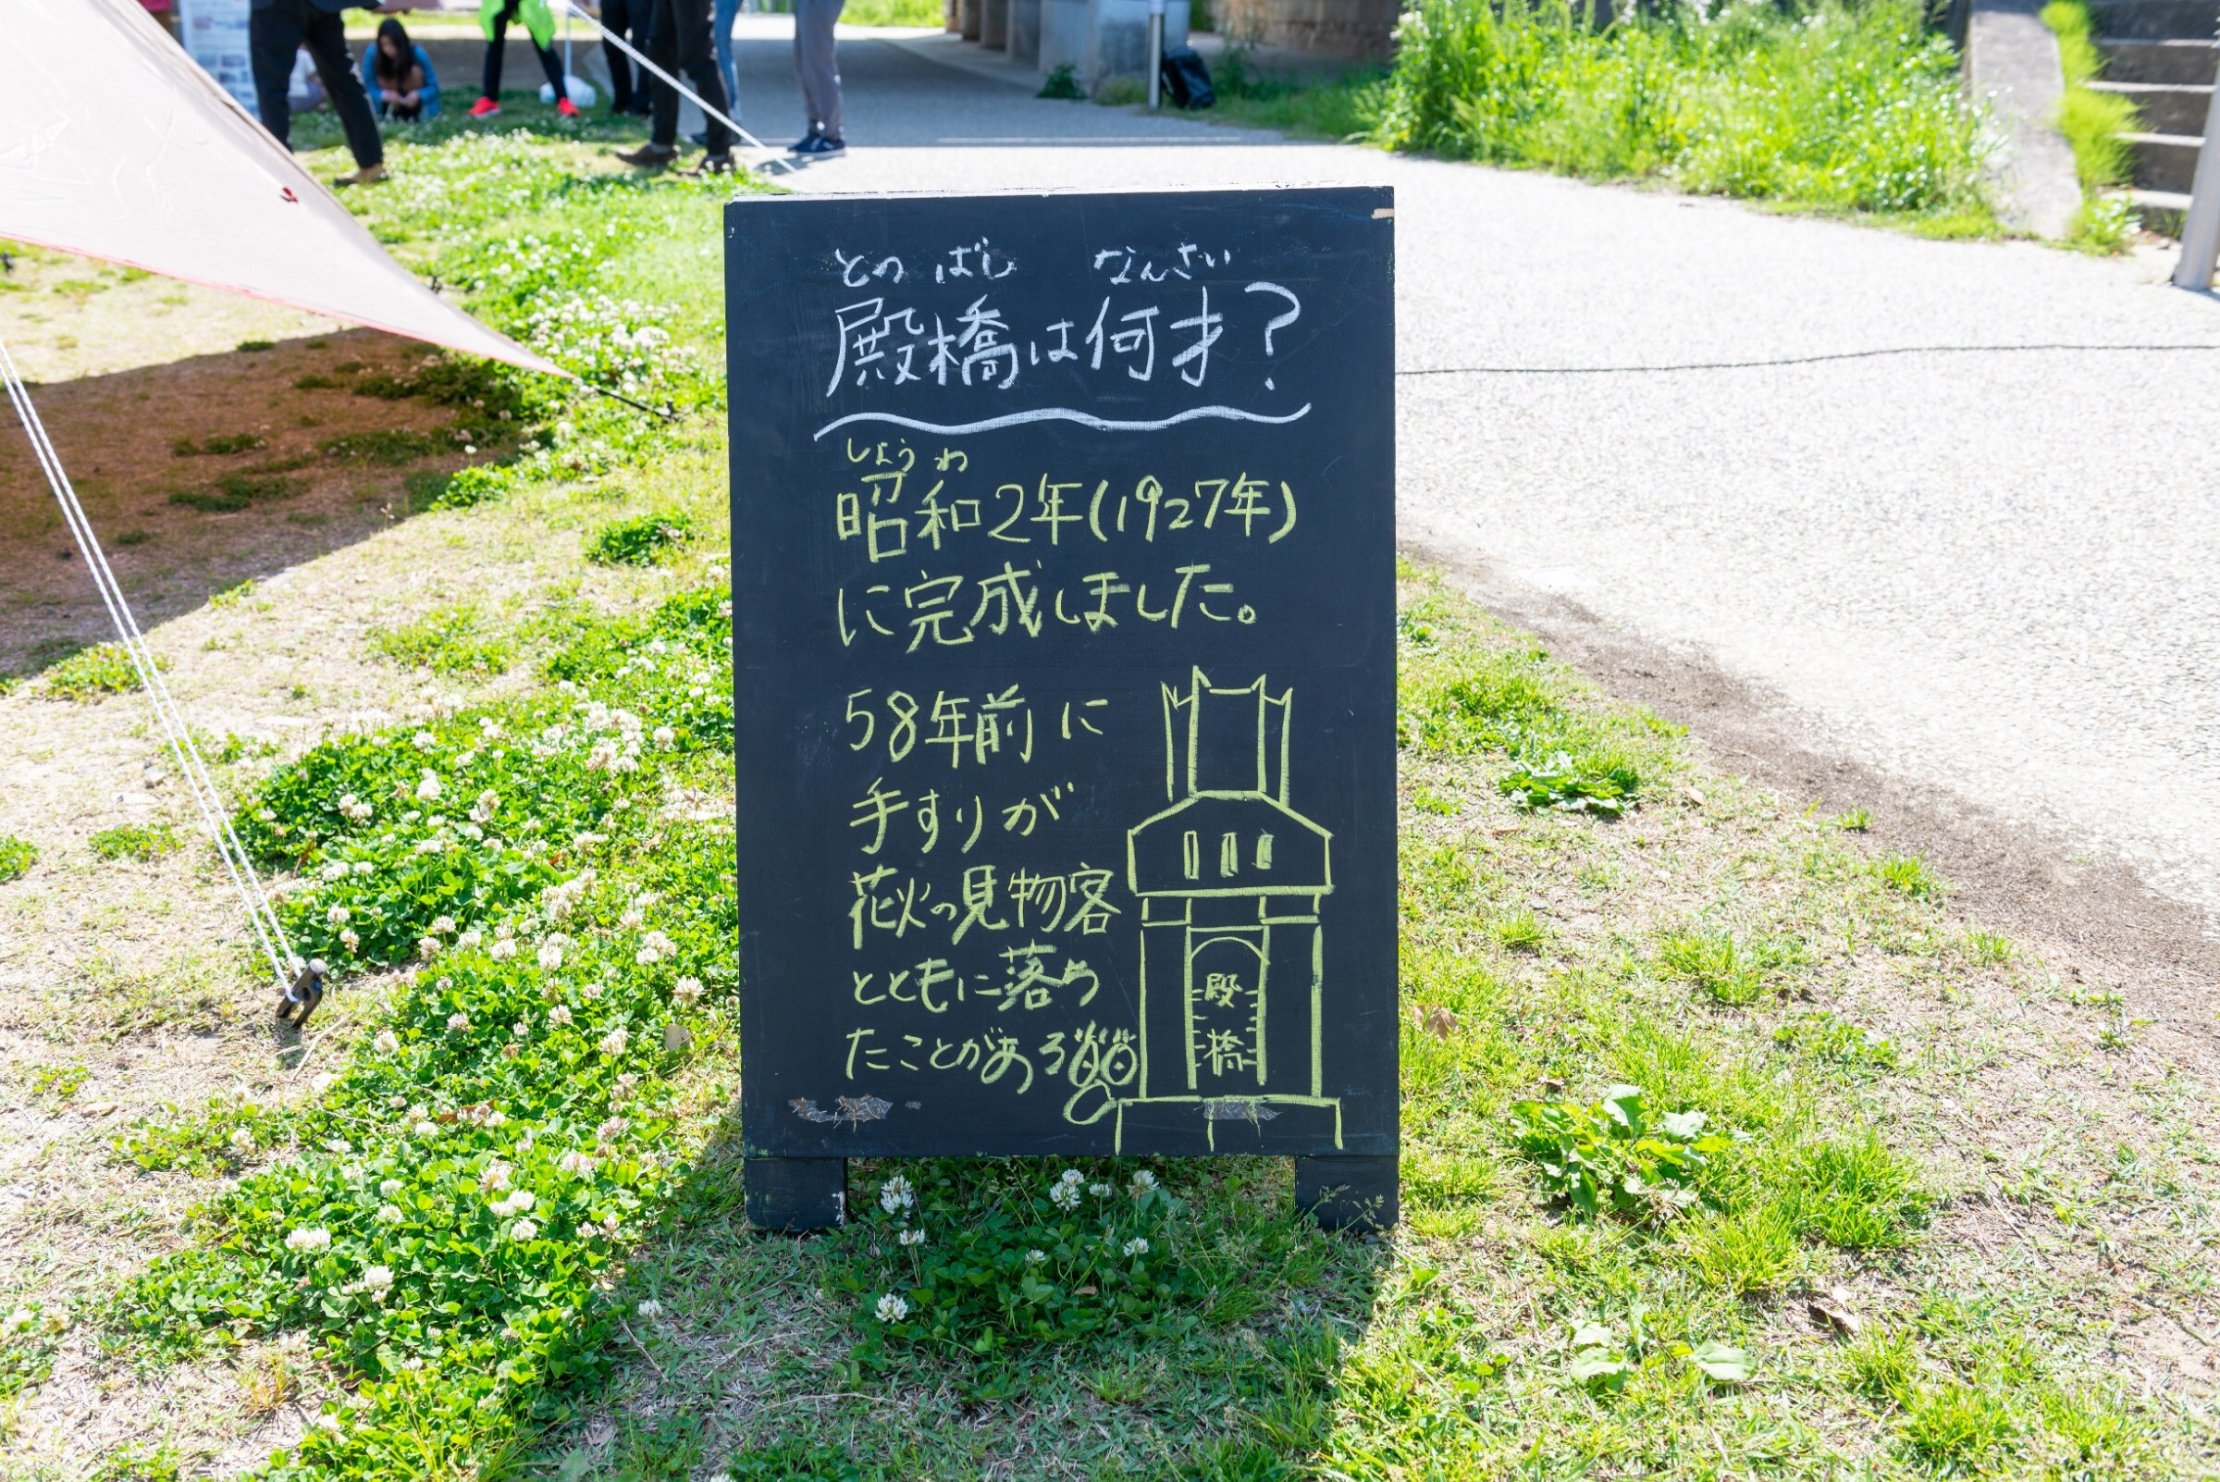 とのばし なんさい
殿橋は何才?
しょうわ
昭和2年(1927年)
に完成しました。
58年前に
手すりが
花火の見物客
とともに落ち
たことがある
殿
橋